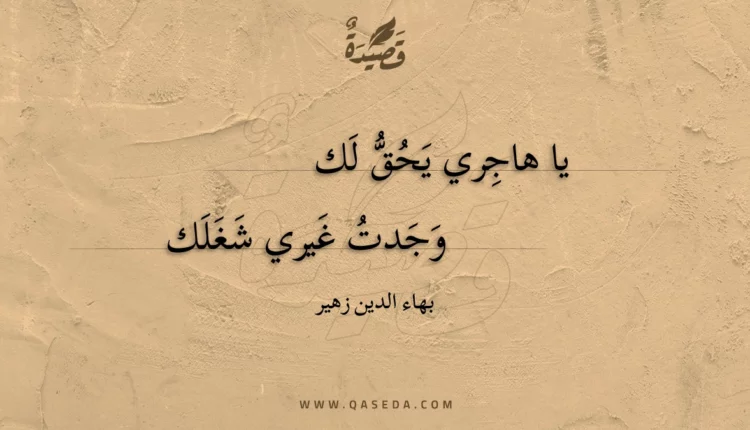 قَصِيدَةٌ
يا هاجِري يَحُقُّ لَك
وَجَدتُ غَيري شَغَلَك
بهاء الدين زهير
WWW.QASEDA.COM